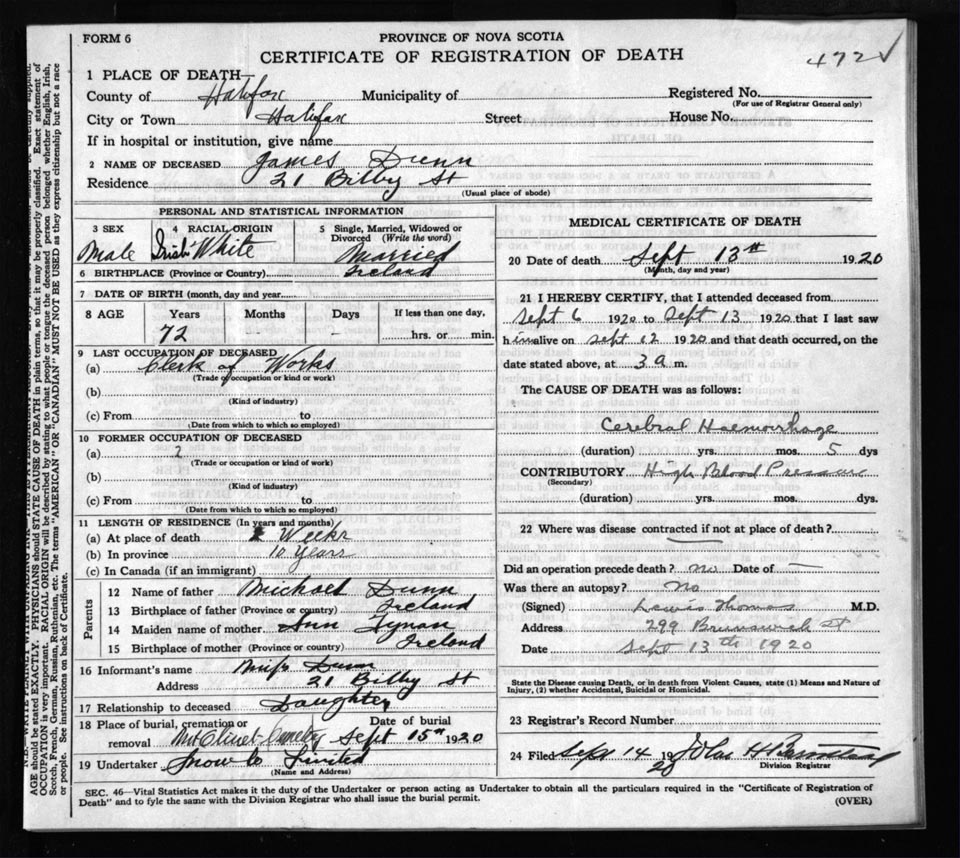 FORM 6
PROVINCE OF NOVA SCOTIA
CERTIFICATE OF REGISTRATION OF DEATH
472
1 PLACE OF DEATH—
County of Halifax Municipality of Registered No.
(For use of Registrar General only)
City or Town Halifax Street House No.
If in hospital or institution, give name
2 NAME OF DECEASED James Dunn
Residence 21 Bilby St
(Usual place of abode)
PERSONAL AND STATISTICAL INFORMATION
3 SEX 4 RACIAL ORIGIN 5 Single, Married, Widowed or Divorced (Write the word)
Male Irish White Married
6 BIRTHPLACE (Province or Country) Ireland
7 DATE OF BIRTH (month, day and year
8 AGE Years Months Days If less than one day,
72 - - hrs. or min.
9 LAST OCCUPATION OF DECEASED
(a) Clerk of Works
(Trade or occupation or kind or work)
(b)
(Kind of industry)
(c) From to
(Date from which to which so employed)
10 FORMER OCCUPATION OF DECEASED
(a)
(Trade or occupation or kind of work)
(b)
(Kind of industry)
(c) From to
(Date from which to which so employed)
11 LENGTH OF RESIDENCE (In years and months)
(a) At place of death Weeks
(b) In province 10 Years
(c) In Canada (if an immigrant)
Parents
12 Name of father Michael Dunn
13 Birthplace of father (Province or country) Ireland
14 Maiden name of mother Ann Tynan
15 Birthplace of mother (Province or country) Ireland
16 Informant's name Miss Dunn
Address 21 Bilby St
17 Relationship to deceased Daughter
18 Place of burial, cremation or removal Mt Olivet Cemetery Date of burial Sept 15th 1920
19 Undertaker Snow Co Limited
(Name and Address)
MEDICAL CERTIFICATE OF DEATH
20 Date of death Sept 13th 1920
(Month, day and year)
21 I HEREBY CERTIFY, that I attended deceased from
Sept 6 1920 to Sept 13 1920 that I last saw
him alive on Sept 12 1920 and that death occurred, on the
date stated above, at 3 a m.
The CAUSE OF DEATH was as follows:
Cerebral Haemorrhage
(duration) yrs. mos. 5 dys
CONTRIBUTORY High Blood Pressure
(Secondary)
(duration) yrs. mos. dys.
22 Where was disease contracted if not at place of death?
Did an operation precede death? No Date of —
Was there an autopsy? No
(Signed) Lewis Thomas M.D.
Address 299 Brunswick St
Date Sept 13th 1920
State the Disease causing Death, or in death from Violent Causes, state (1) Means and Nature of
Injury, (2) whether Accidental, Suicidal or Homicidal.
23 Registrar's Record Number
24 Filed Sept 14 1920
Division Registrar
SEC. 46—Vital Statistics Act makes it the duty of the Undertaker or person acting as Undertaker to obtain all the particulars required in the "Certificate of Registration of
Death" and to fyle the same with the Division Registrar who shall issue the burial permit.
(OVER)
AGE should be stated EXACTLY. PHYSICIANS should STATE CAUSE OF DEATH in plain terms, so that it may be properly classified. Exact statement of
OCCUPATION is very important. RACIAL ORIGIN will be described by stating to what people or tongue the deceased person belonged whether English, Irish,
Scotch, French, German, Russian, Ruthenian, etc. The terms "AMERICAN" OR "CANADIAN" MUST NOT BE USED as they express citizenship but not a race
or people. See instructions on back of Certificate.